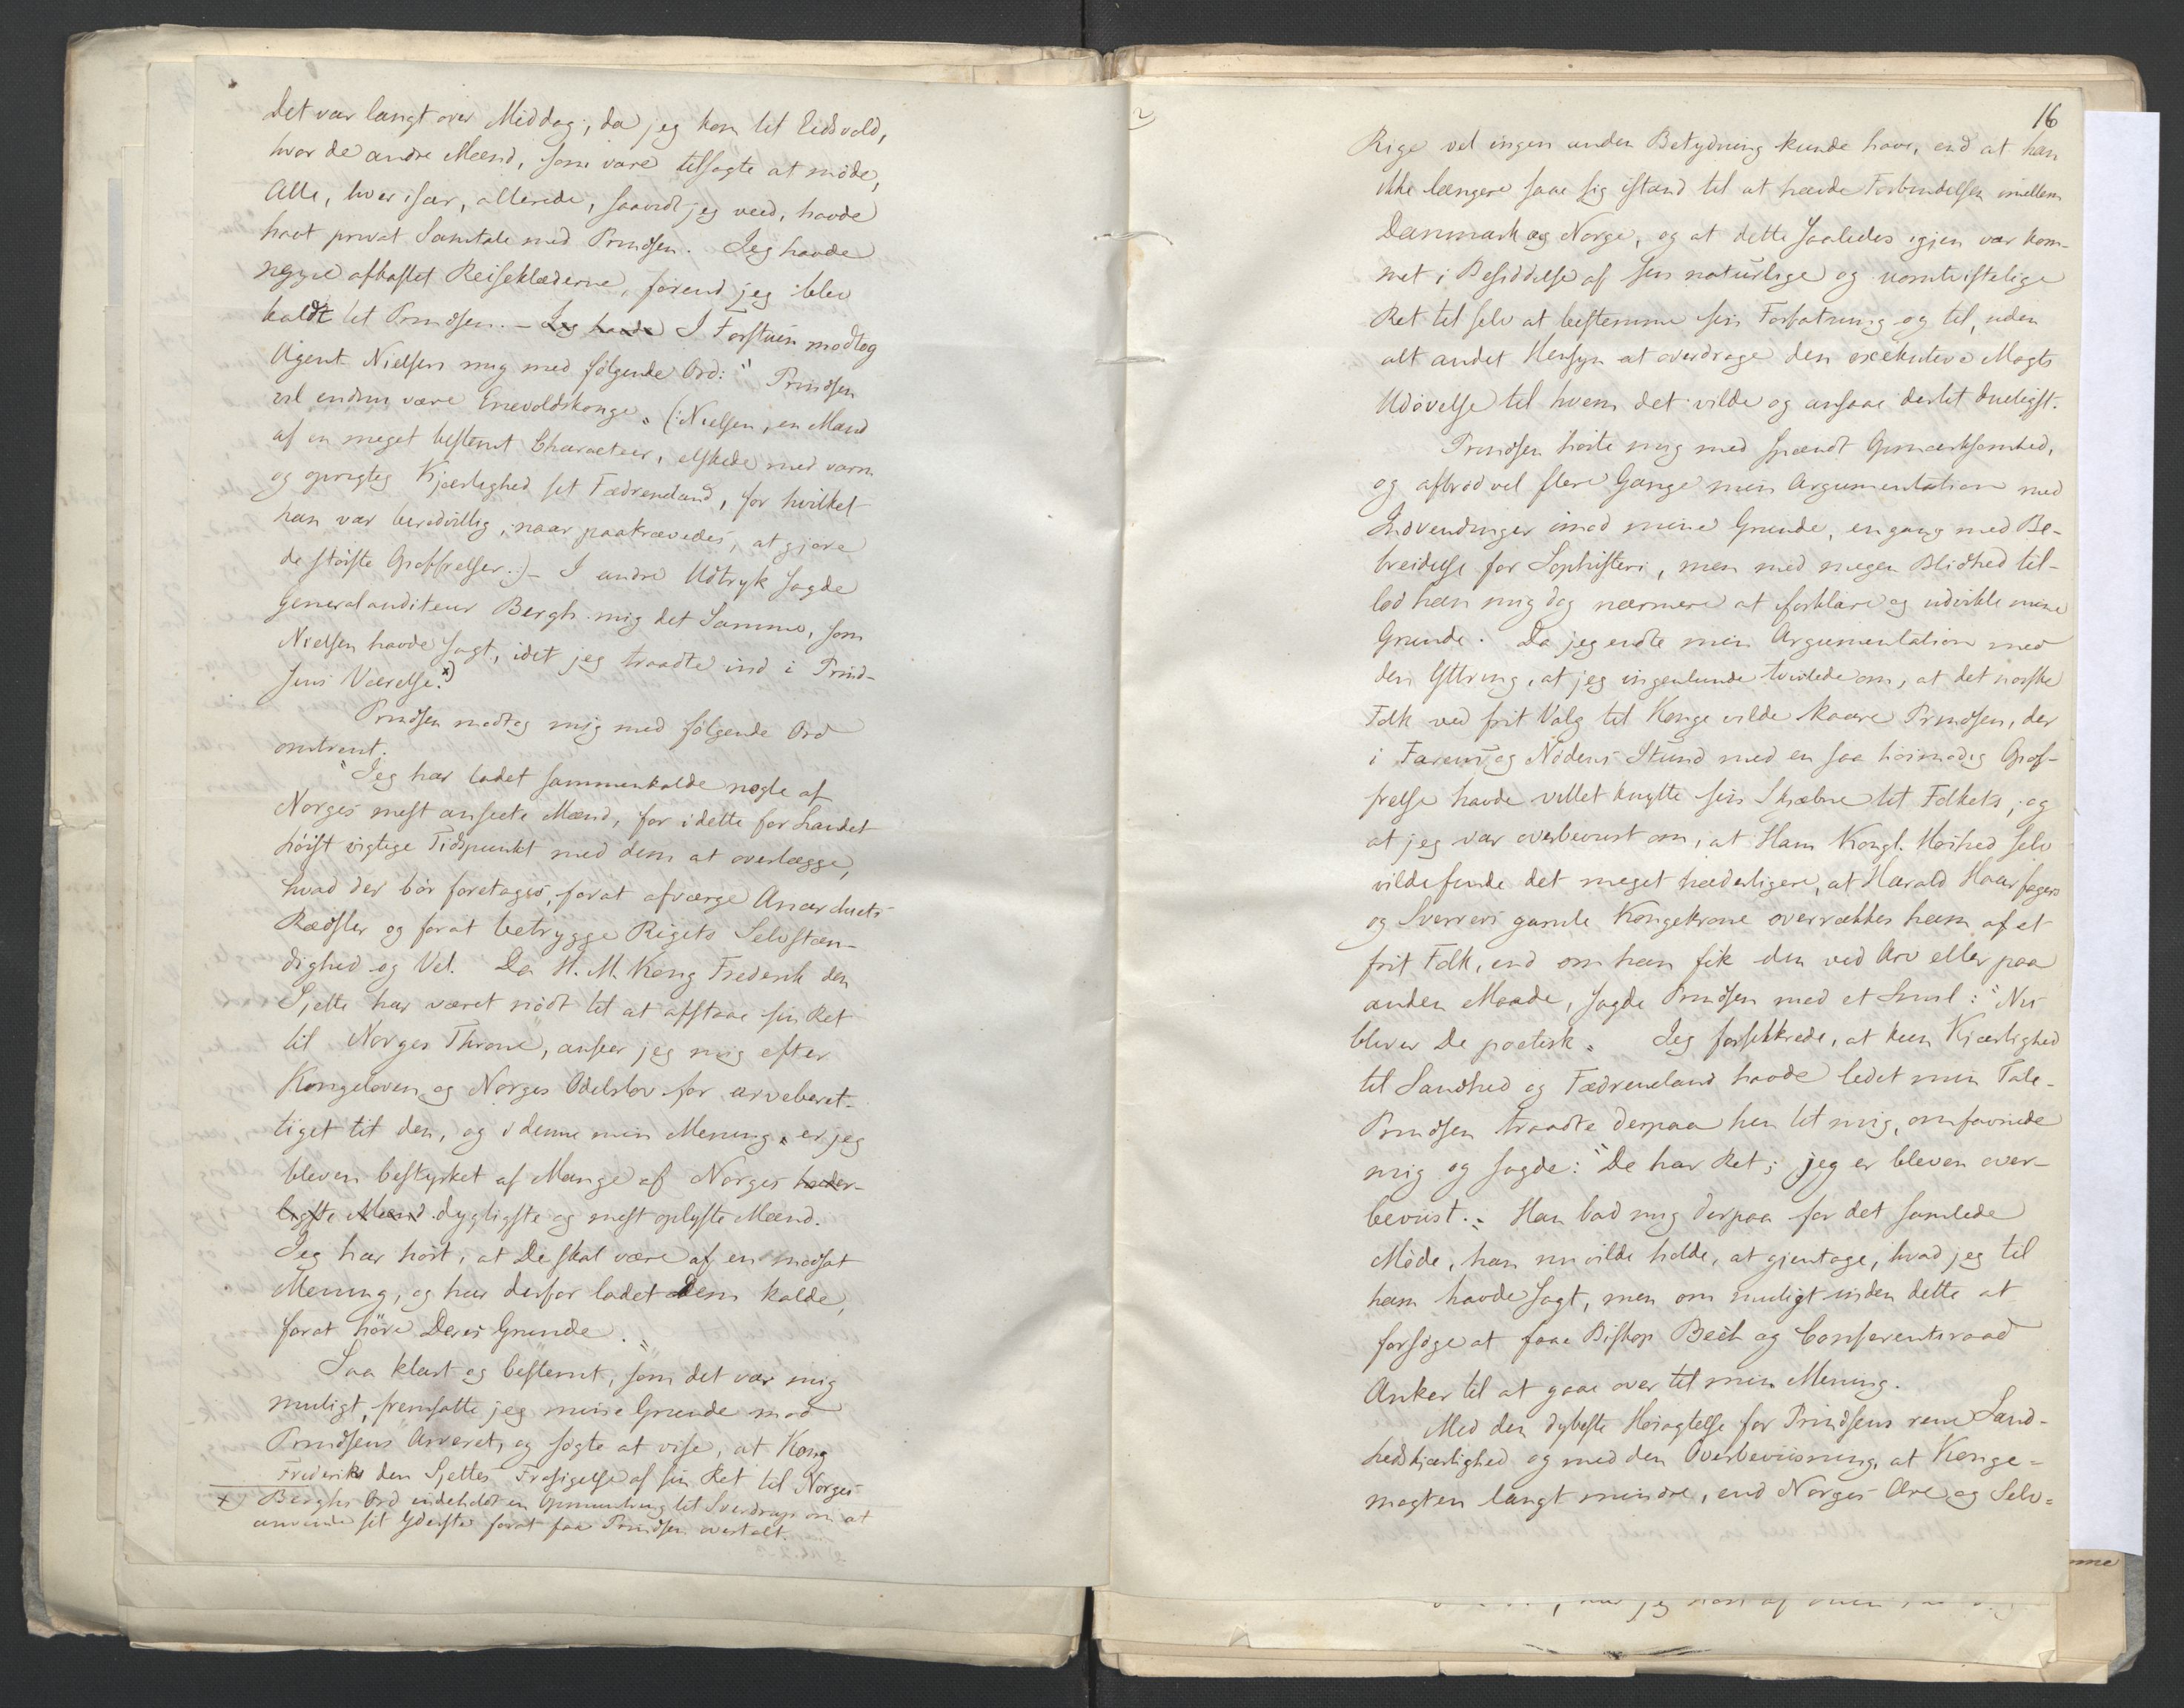 Det var langt over Middag, da jeg kom til Eidsvold,
hvor de andre Mænd, som vare tilsagte at møde,
Alle, hver især, allerede, saavidt jeg veed, havde
havt privat Samtale med Prindsen. Jeg havde
neppe afkastet Reiseklæderne, førend jeg blev
kaldt til Prindsen. – Jeg havde I Forstuen modtog
Agent Nielsen mig med følgende Ord: "Prindsen
vil endnu være Enevoldskonge". (: Nielsen, en Mand
af en meget bestemt Characteer, elskede med varm
og oprigtig Kjærlighed sit Fædreneland, for hvilket
han var beredvillig, naar paakrævedes, at gjøre
de største Opoffrelser.:) – I andre Udtryk sagde
Generalauditeur Bergh mig det Samme, som
Nielsen havde sagt, idet jeg traadte ind i Prind-
sens Værelse. x)
Prindsen modtog mig med følgende Ord
omtrent.
"Jeg har ladet sammenkalde nogle af
Norges mest anseete Mænd, for i dette for Landet
høist vigtige Tidspunkt med dem at overlægge,
hvad der bør foretages, forat afværge Anarchiets
Rædsler og forat betrygge Rigets Selvstæn-
dighed og Vel. Da H. M. Kong Frederik den
Sjette har været nødt til at afstaae sin Ret
til Norges Throne, anseer jeg mig efter
Kongeloven og Norges Odelslov for arveberet-
tiget til den, og i denne min Mening er jeg
bleven bestyrket af Mange af Norges hæder-
ligste Mænd dygtigste og mest oplyste Mænd.
Jeg har hørt, at De skal være af en modsat
Mening, og har derfor ladet Dem kalde,
forat høre Deres Grunde."
Saa klart og bestemt, som det var mig
muligt, fremsatte jeg mine Grunde mod
Prindsens Arveret, og søgte at vise, at Kong
Frederik den Sjettes Frasigelse af sin Ret til Norges
x) Berghs Ord indeholdt en Opmuntring til Sverdrup om at
anvende sit Yderste forat faae Prindsen overtalt.
2
16
Rige vel ingen anden Betydning kunde have, end at han
ikke længere saae sig istand til at hævde Forbindelsen imellem
Danmark og Norge, og at dette saaledes igjen var kom-
met i Besiddelse af sin naturlige og uomtvistelige
Ret til selv at bestemme sin Forfatning og til, uden
alt andet Hensyn at overdrage den exekutive Magts
Udøvelse til hvem det vilde og ansaae dertil dueligst.
Prindsen hørte mig med spændt Opmærksomhed,
og afbrød vel flere Gange min Argumentation med
Indvendinger imod mine Grunde, engang med Be-
breidelse for Sophisteri, men med megen Blidhed til-
lod han mig dog nærmere at forklare og udvikle mine
Grunde. Da jeg endte min Argumentation med
den Yttring, at jeg ingenlunde tvivlede om, at det norske
Folk ved frit Valg til Konge vilde kaare Prindsen, der
i Farens og Nødens Stund med en saa høimodig Opof-
frelse havde villet knytte sin Skæbne til Folkets, og
at jeg var overbeviist om, at Hans Kongl. Høihed selv
vilde finde det meget hæderligere, at Harald Haarfagers
og Sverres gamle Kongekrone overrækkes ham af et
frit Folk, end om han fik den ved Arv eller paa
anden Maade, sagde Prindsen med et Smil: "Nu
bliver De poetisk". Jeg forsikkrede, at kun Kjærlighed
til Sandhed og Fædreneland havde ledet min Tale.
Prindsen traadte derpaa hen til mig, omfavnede
mig og sagde: "De har Ret; jeg er bleven over-
beviist." Han bad mig derpaa for det samlede
Møde, han nu vilde holde, at gjentage, hvad jeg til
ham havde sagt, men om muligt inden dette at
forsøge at faae Biskop Bech og Conferentsraad
Anker til at gaae over til min Mening.
Med den dybeste Høiagtelse for Prindsens rene Sand-
hedskjærlighed og med den Overbeviisning, at Konge-
magten langt mindre, end Norges Ære og Selv-